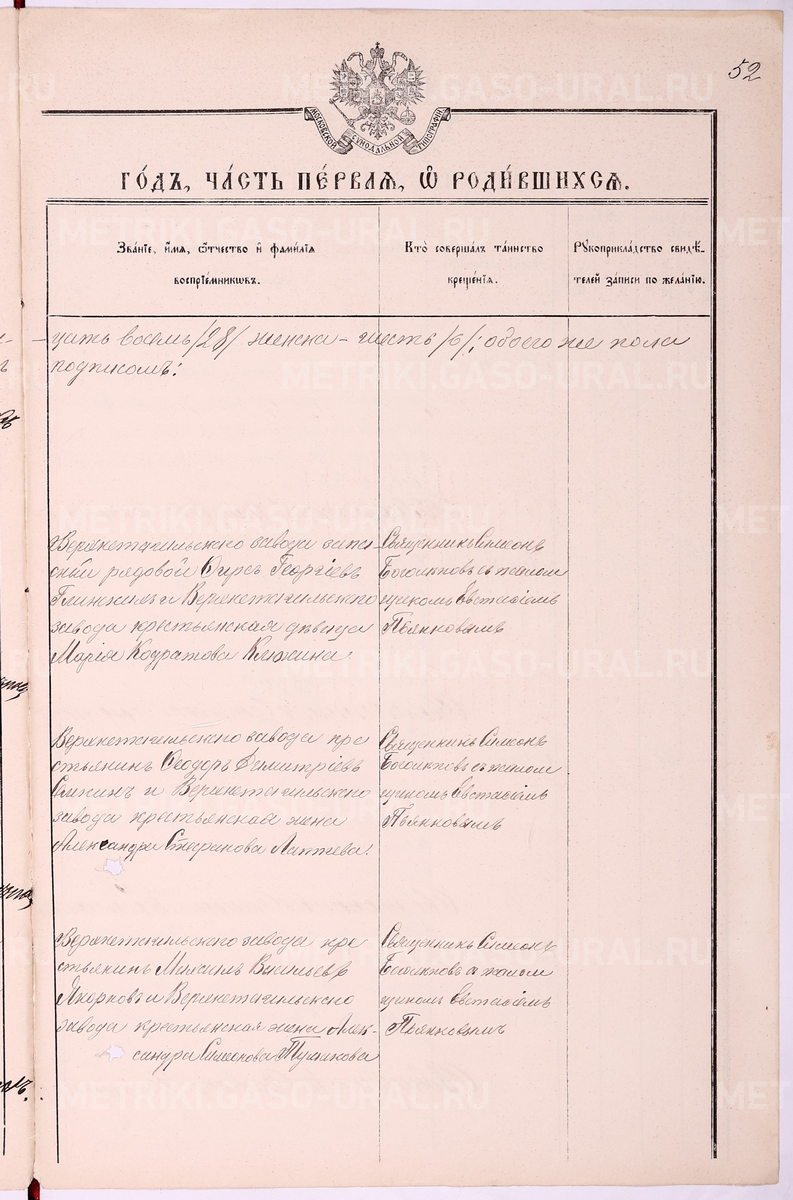 52
МОСКОВСКОЙ СѴНОДАЛЬНОЙ ТИПОГРАФІИ
ГО́ДЪ, ЧА́СТЬ ПЕ́РВАЯ, Ѽ РОДИ́ВШИХСЯ.
Зва́нїе, и҆́мя, ѻ҆́тчество и҆ фами́лїя
воспрїе́мникѡвъ.
Кто̀ соверша́лъ та́инство
креще́нїя.
Рꙋкоприкла́дство свидѣ́-
телей за́писи по жела́нїю.
цать восемь /28/ женска – шесть /6/; обоего же пола
Верхнетагильскаго завода запа-
сный рядовой Георгіевъ
и Верхнетагильскаго
завода крестьянская дѣвица
Марія Кодратова
Священникъ Симеонъ
Боголѣповъ съ псалом
щикомъ Евстафіемъ
Пьянковымъ
Верхнетагильскаго завода кре
стьянинъ Ѳеодоръ Димитріевъ
и Верхнетагильскаго
завода крестьянская жена
Александра Стефанова Лаптева.
Священникъ Симеонъ
Боголѣповъ съ псалом
щикомъ Евстафіемъ
Пьянковымъ
Верхнетагильскаго завода кре
стьянинъ Васильевъ
и Верхнетагильскаго
завода крестьянская жена Алек-
сандра Симеонова
Священникъ Симеонъ
Боголѣповъ съ псалом
щикомъ Евстафіемъ
Пьянковымъ
METRIKI.GASO-URAL.RU